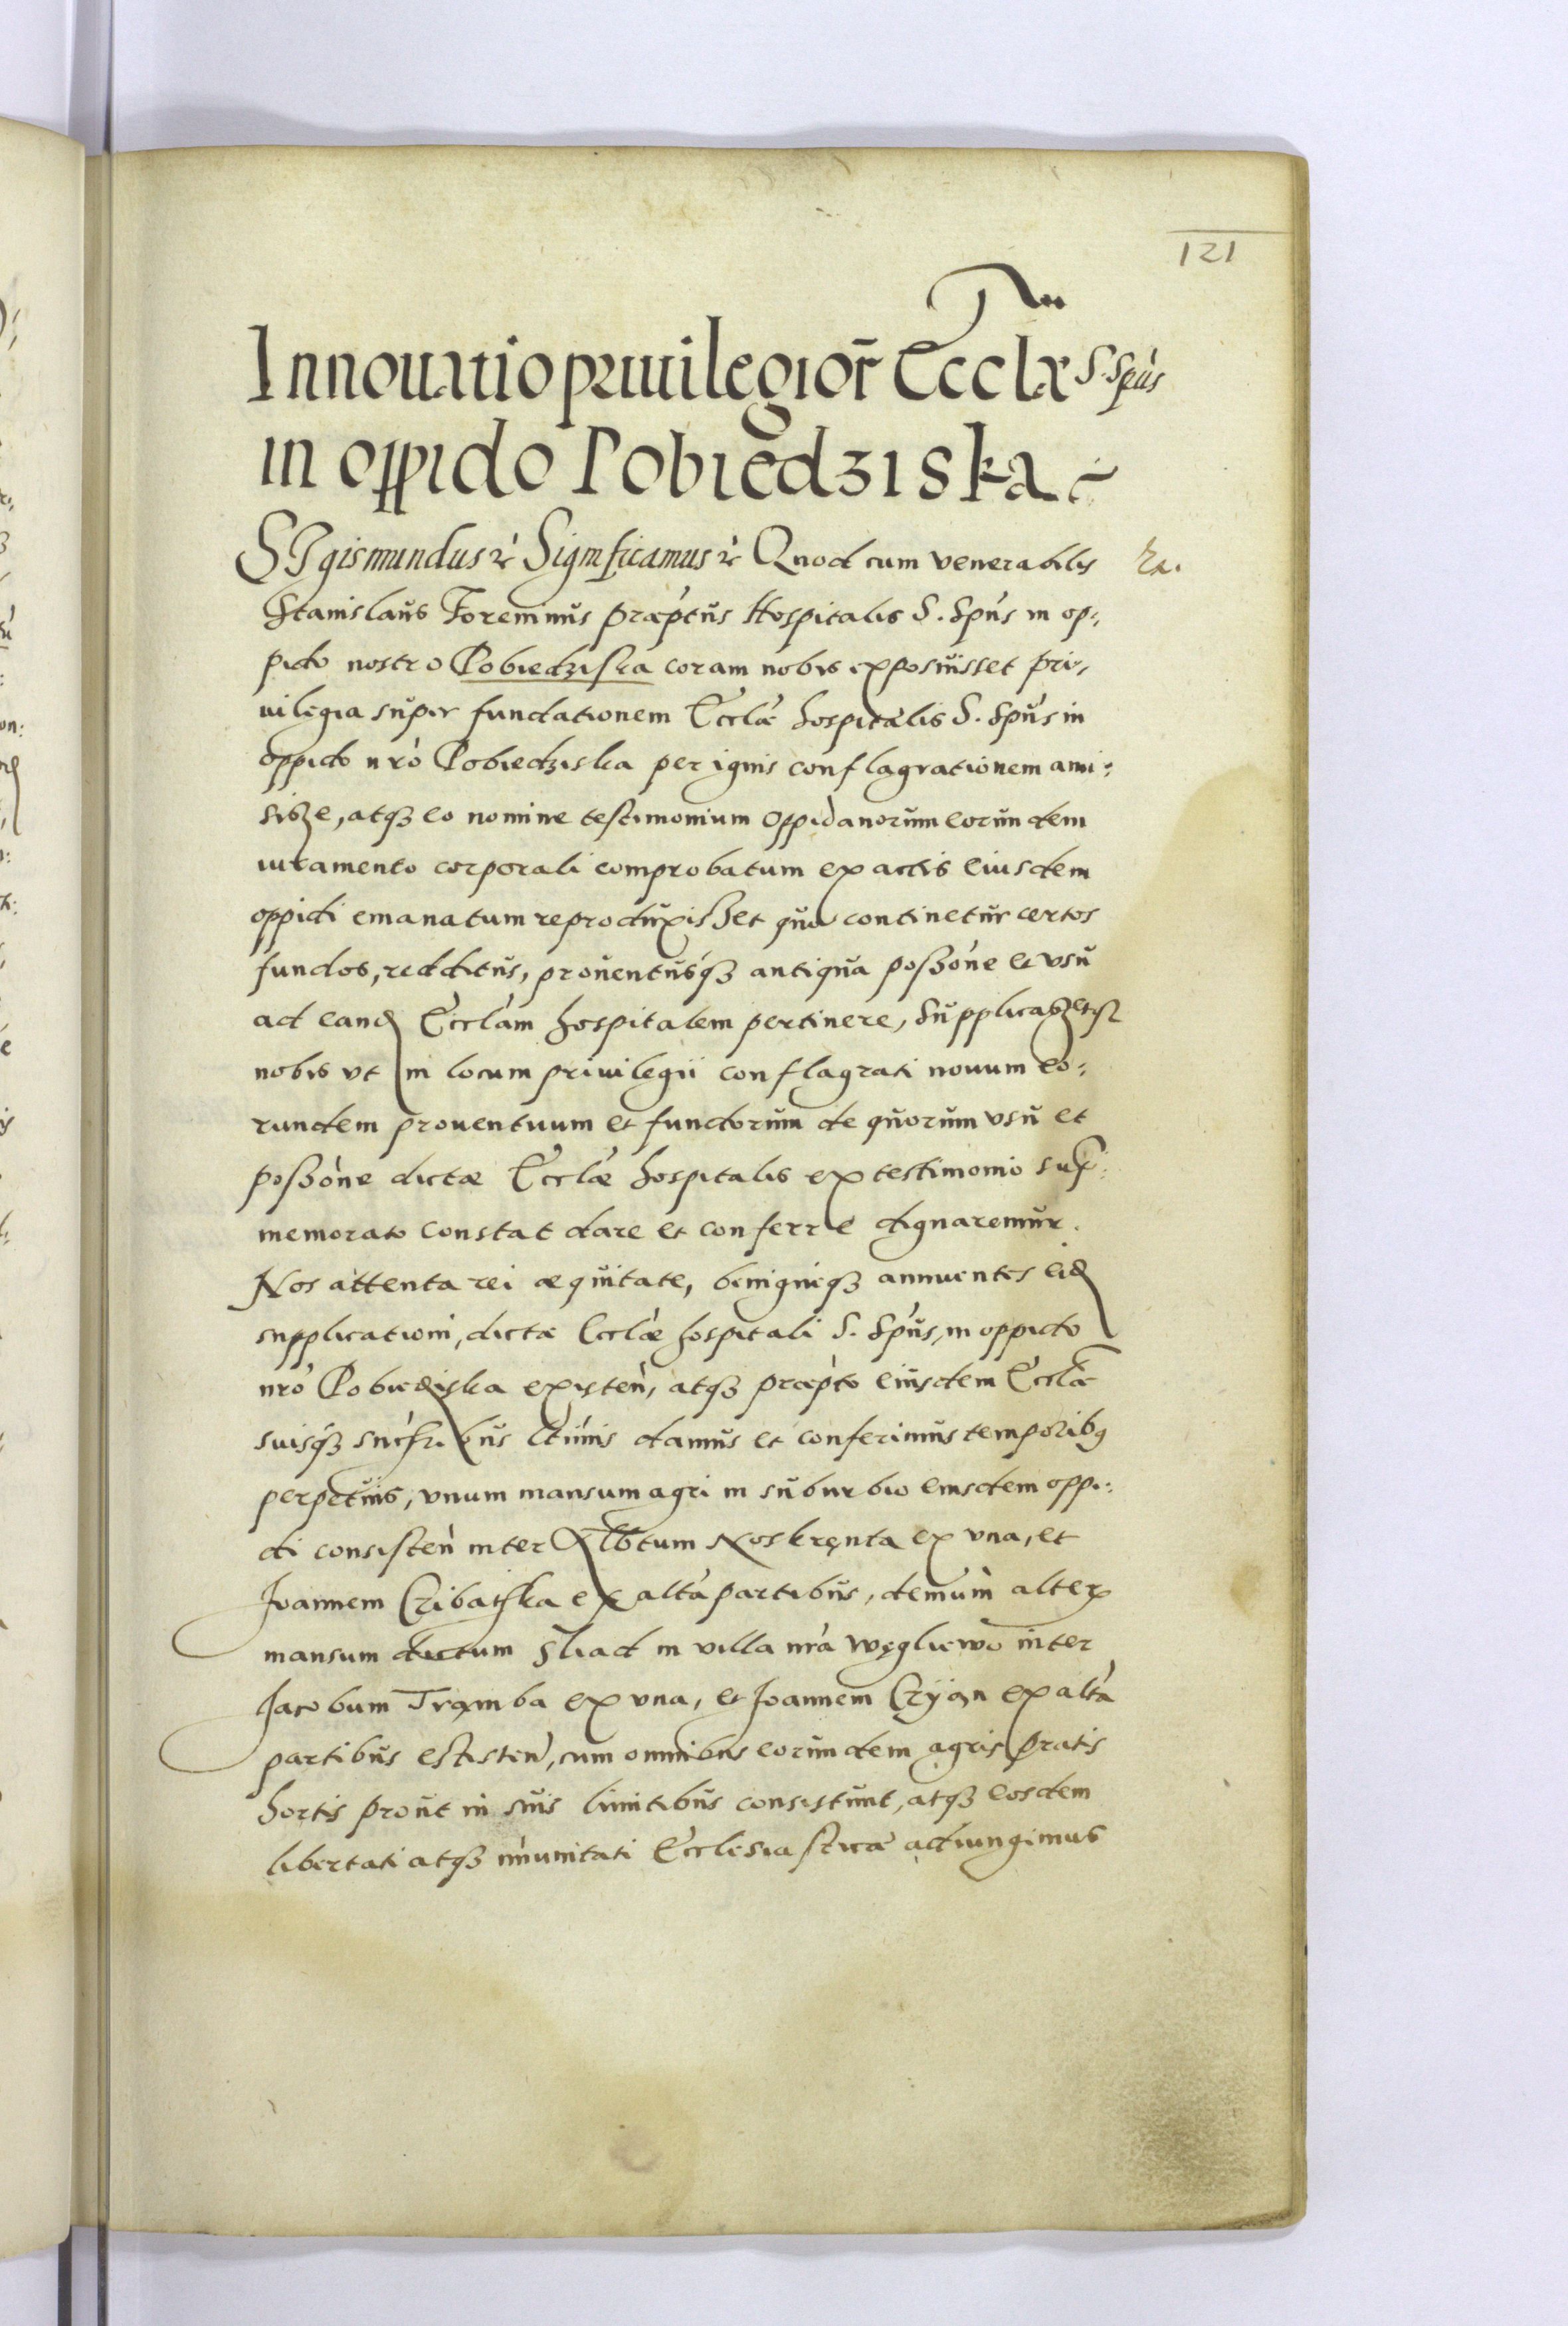 121
Innouatio priuilegior̃ Ecclæ S. Spũs
in oppido Pobiedziska
SIgismundus &c Significamus &c Quod cum venerabilis
Stanislaus Foreninus præptus Hospitalis S. Spũs in op,
pido nostro Pobiedziska coram nobis exposuisset pri,
uilegia super fundationem Ecclæ hospitalis S. Spũs in
oppido nrõ Pobiedziska per ignis conflagrationem ami:
sisse, atq3 eo nomine testimonium oppidanorum eorundem
iuramento corporali comprobatum ex actis eiusdem
oppidi emanatum reproduxisset quo continetur certos
fundos, redditus, prouentusq3 antiqua possõne et vsu
ad eand Ecclãm hospitalem pertinere, Supplicassetq3
nobis vt in locum priuilegii conflagrati nouum eo:
rundem prouentuum et fundorum de quorum vsu et
possõne dictæ Ecclæ hospitalis ex testimonio sup:
memorato constat dare et conferre dignaremur.
Nos attenta rei æquitate, benigneq3 annuentes eid
supplicationi, dictæ Ecclæ hospitali S. Spũs, in oppido
nrõ Pobiediska existeñ, atq3 præpto eiusdem Ecclæ
suisq3 sucribus ltimis damus et conferimus temporibq
perpetuis, vnum mansum agri in suburbio eiusdem oppi:
di consisteñ inter Albtum Noskręnta ex vna, et
Joannem Czibaiska ex alta partibus, demum alter
mansum dictum Sliad in villa nrã Węgliewo inter
Jacobum Trąmba ex vna, et Joannem Czÿan ex alta
partibus exisisteñ, cum omnibus eorundem agris pratis
hortis prout in suis limitibus consistunt, atq3 eosdem
libertati atq3 imunitati Ecclesiasticæ adiungimus